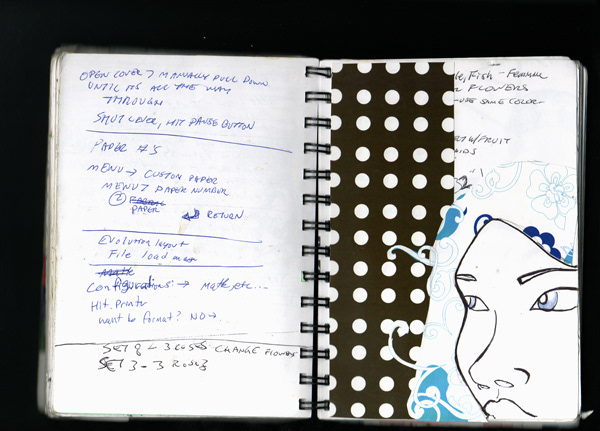 OPEN COVER > MANUALLY PULL DOWN
UNTIL ITS ALL THE WAY
THROUGH
SHUT COVER, HIT PAUSE BUTTON
PAPER #5
MENU → CUSTOM PAPER
MENU > PAPER NUMBER
② FABRIC
PAPER
RETURN
Evolution layout
File load
Math
Configurations: → Math, etc...
Hit Printr
want to format? NO → ..
SET 8 - 3 ROSES CHANGE FLOWERS
SET 3 - 3 ROSES
Fish - Femme
FLOWERS
USE SAME COLOR
W/FRUIT
2